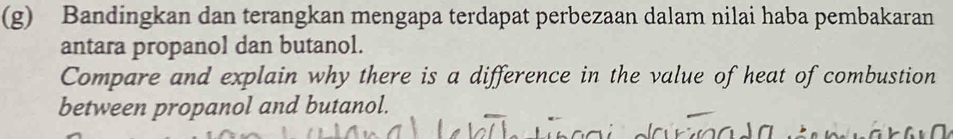 (g) Bandingkan dan terangkan mengapa terdapat perbezaan dalam nilai haba pembakaran
antara propanol dan butanol.
Compare and explain why there is a difference in the value of heat of combustion
between propanol and butanol.